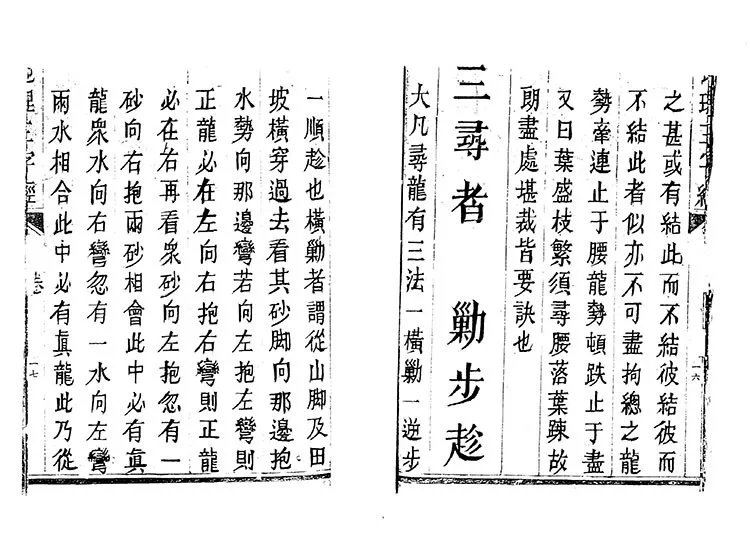 之甚或有結此而不結彼結彼而
不結此者似亦不可盡拘總之龍
勢牽連止于腰龍勢頓跌止于盡
又曰葉盛枝繁須尋腰落葉踈故
朗盡處堪裁皆要訣也
三尋者 勦步趁
大凡尋龍有三法一橫勦一逆步
一順趁也橫勦者謂從山脚及田
坡橫穿過去看其砂脚向那邊抱
水勢向那邊彎若向左抱左彎則
正龍必在左向右抱右彎則正龍
必在右再看衆砂向左抱忽有一
砂向右抱兩砂相會此中必有真
龍衆水向右彎忽有一水向左彎
兩水相合此中必有真龍此乃從
地理三字經
卷
一六
一七